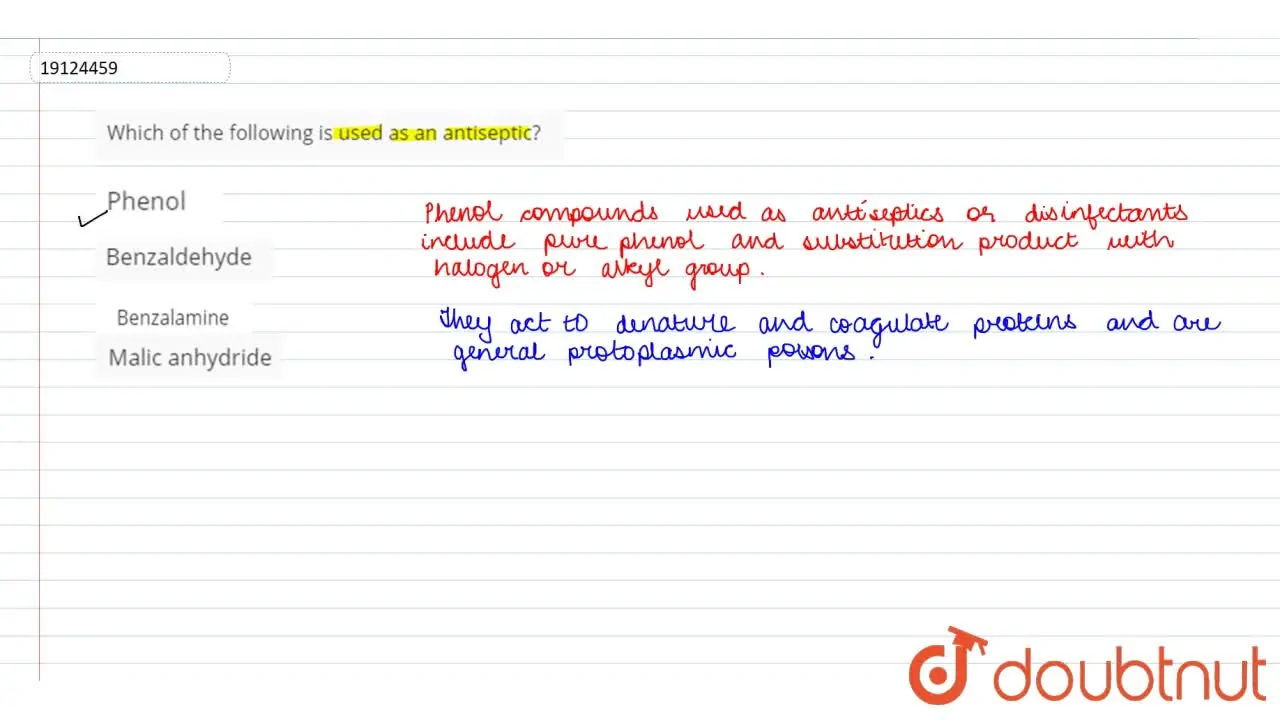 19124459
Which of the following is used as an antiseptic?
Phenol
Benzaldehyde
Benzalamine
Malic anhydride
Phenol compounds used as antiseptics or disinfectants
include pure phenol and substitution product with
halogen or alkyl group.
They act to denature and coagulate proteins and are
general protoplasmic poisons.
doubtnut